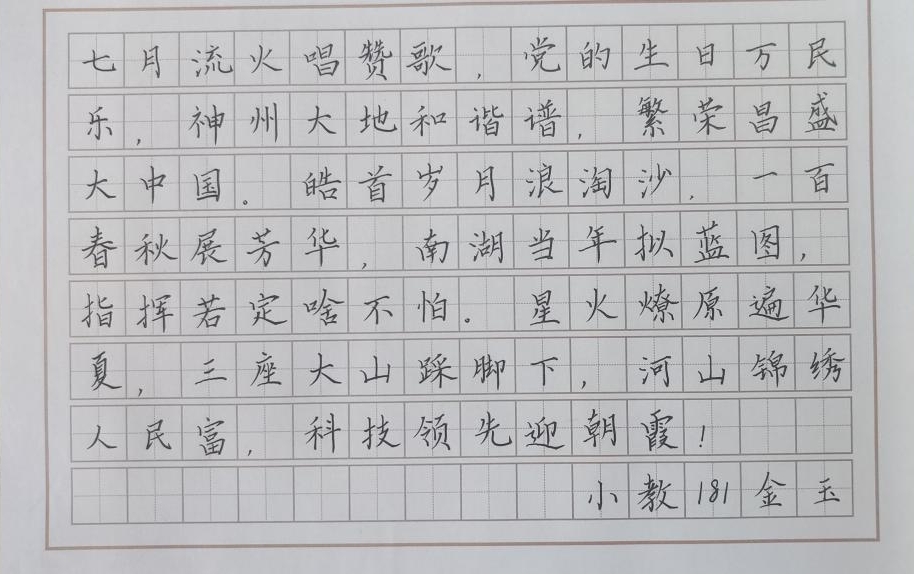 七月流火唱赞歌，党的生日万民
乐，神州大地和谐谱，繁荣昌盛
大中国。皓首岁月浪淘沙，一百
春秋展芳华，南湖当年拟蓝图，
指挥若定啥不怕。星火燎原遍华
夏，三座大山踩脚下，河山锦绣
人民富，科技领先迎朝霞！
小教181金玉